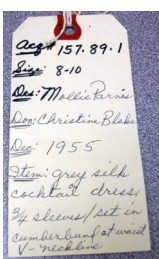 acq# 157.89.1
Size: 8-10
Des: Mollie Parnis
Don: Christine Blake
Dec: 1955
Item: grey silk
cocktail dress,
3/4 sleeves/set in
cumberbund at waist
V-neckline